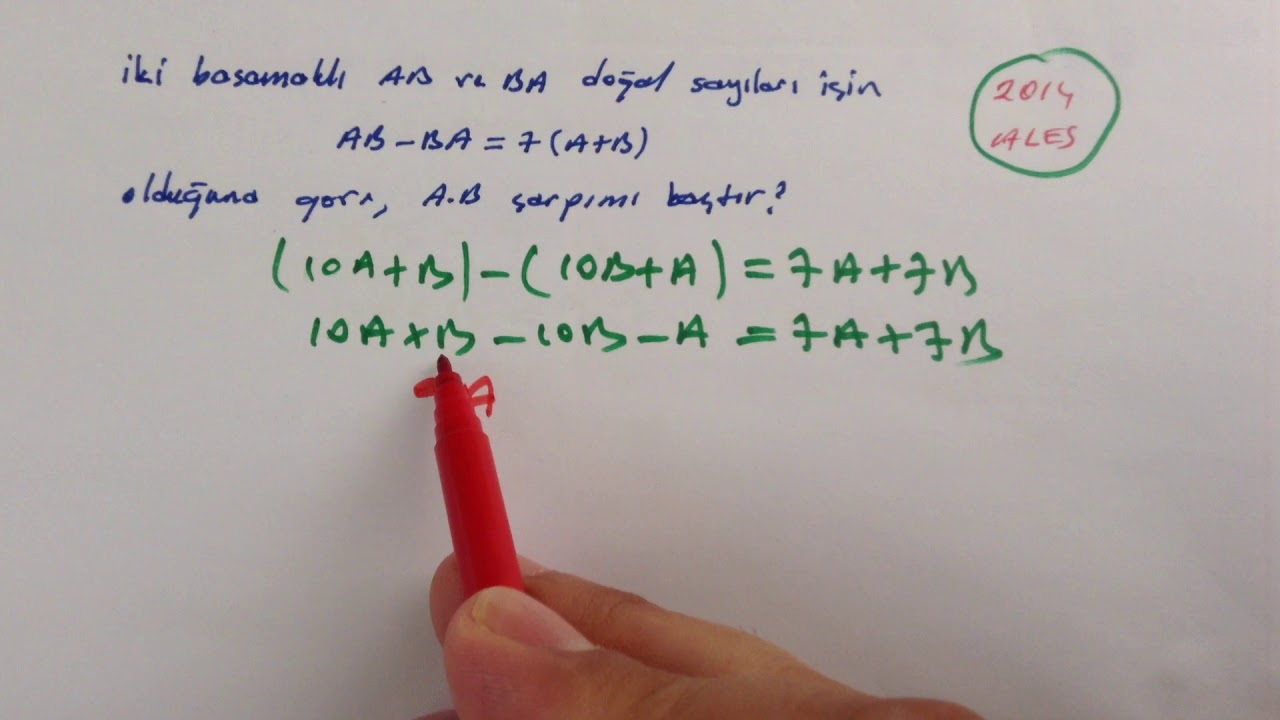 iki basamaklı AB ve BA doğal sayıları için
AB - BA = 7(A+B)
olduğuna göre, A.B çarpımı kaçtır?
2014
ALES
(10A+B) - (10B+A) = 7A+7B
10A+B - 10B - A = 7A+7B